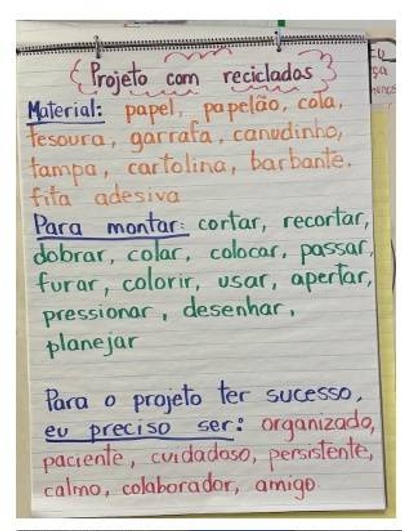 Projeto com reciclados
Material: papel, papelão, cola,
tesoura, garrafa, canudinho,
tampa, cartolina, barbante.
fita adesiva
Para montar: cortar, recortar,
dobrar, colar, colocar, passar,
furar, colorir, usar, apertar,
pressionar, desenhar,
planejar
Para o projeto ter sucesso,
eu preciso ser: organizado,
paciente, cuidadoso, persistente,
calmo, colaborador, amigo.